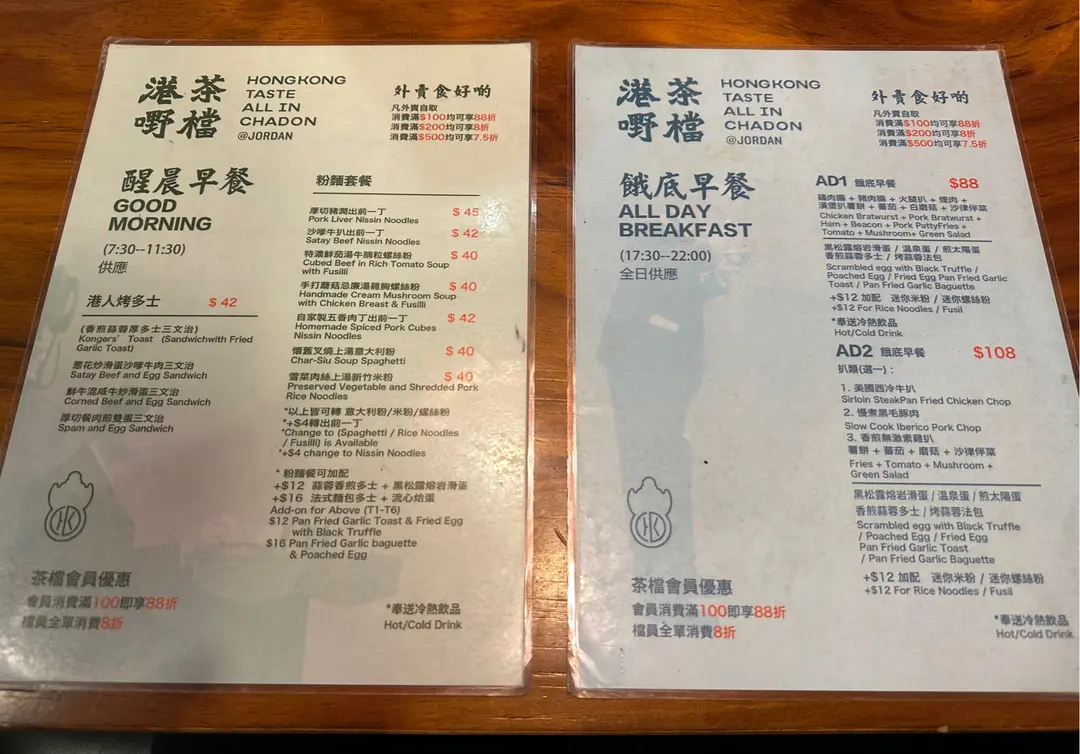 港茶
嘢檔
HONGKONG
TASTE
ALL IN
CHADON
@JORDAN
外賣食好啲
凡外賣自取
消費滿$100均可享88折
消費滿$200均可享8折
消費滿$500均可享7.5折
醒晨早餐
GOOD
MORNING
(7:30--11:30)
供應
港人烤多士 $ 42
(香煎蒜蓉厚多士三文治)
Kongers' Toast (Sandwichwith Fried
Garlic Toast)
葱花炒滑蛋沙嗲牛肉三文治
Satay Beef and Egg Sandwich
鮮牛混咸牛炒滑蛋三文治
Corned Beef and Egg Sandwich
厚切餐肉煎雙蛋三文治
Spam and Egg Sandwich
粉麵套餐
厚切豬潤出前一丁 $ 45
Pork Liver Nissin Noodles
沙嗲牛扒出前一丁 $ 42
Satay Beef Nissin Noodles
特濃鮮茄湯牛腩粒螺絲粉 $ 40
Cubed Beef in Rich Tomato Soup
with Fusilli
手打蘑菇忌廉湯雞胸螺絲粉 $ 40
Handmade Cream Mushroom Soup
with Chicken Breast & Fusilli
自家製五香肉丁出前一丁 $ 42
Homemade Spiced Pork Cubes
Nissin Noodles
懷舊叉燒上湯意大利粉 $ 40
Char-Siu Soup Spaghetti
雪菜肉絲上湯新竹米粉 $ 40
Preserved Vegetable and Shredded Pork
Rice Noodles
*以上皆可轉 意大利粉/米粉/螺絲粉
*+$4轉出前一丁
*Change to (Spaghetti / Rice Noodles
/ Fusilli) is Available
*+$4 change to Nissin Noodles
* 粉麵餐可加配
+$12 蒜蓉香煎多士 + 黑松露熔岩滑蛋
+$16 法式麵包多士 + 流心焓蛋
Add-on for Above (T1-T6)
$12 Pan Fried Garlic Toast & Fried Egg
with Black Truffle
$16 Pan Fried Garlic baguette
& Poached Egg
茶檔會員優惠
會員消費滿100即享88折
檔員全單消費8折
*奉送冷熱飲品
Hot/Cold Drink
港茶
嘢檔
HONGKONG
TASTE
ALL IN
CHADON
@JORDAN
外賣食好啲
凡外賣自取
消費滿$100均可享88折
消費滿$200均可享8折
消費滿$500均可享7.5折
餓底早餐
ALL DAY
BREAKFAST
(17:30--22:00)
全日供應
AD1 餓底早餐 $88
雞肉腸 + 豬肉腸 + 火腿扒 + 煙肉 +
漢堡扒薯餅 + 蕃茄 + 白蘑菇 + 沙律伴菜
Chicken Bratwurst + Pork Bratwurst +
Ham + Beacon + Pork PattyFries +
Tomato + Mushroom+ Green Salad
黑松露熔岩滑蛋 / 溫泉蛋 / 煎太陽蛋
香煎蒜蓉多士 / 烤蒜蓉法包
Scrambled egg with Black Truffle /
Poached Egg / Fried Egg Pan Fried Garlic
Toast / Pan Fried Garlic Baguette
+$12 加配 迷你米粉 / 迷你螺絲粉
+$12 For Rice Noodles / Fusil
*奉送冷熱飲品
Hot/Cold Drink
AD2 餓底早餐 $108
扒類(選一) :
1. 美國西冷牛扒
Sirloin SteakPan Fried Chicken Chop
2. 慢煮黑毛豚肉
Slow Cook Iberico Pork Chop
3. 香煎無激素雞扒
薯餅 + 蕃茄 + 磨菇 + 沙律伴菜
Fries + Tomato + Mushroom +
Green Salad
黑松露熔岩滑蛋 / 溫泉蛋 / 煎太陽蛋
香煎蒜蓉多士 / 烤蒜蓉法包
Scrambled egg with Black Truffle
/ Poached Egg / Fried Egg
Pan Fried Garlic Toast
/ Pan Fried Garlic Baguette
+$12 加配 迷你米粉 / 迷你螺絲粉
+$12 For Rice Noodles / Fusil
茶檔會員優惠
會員消費滿100即享88折
檔員全單消費8折
*奉送冷熱飲品
Hot/Cold Drink